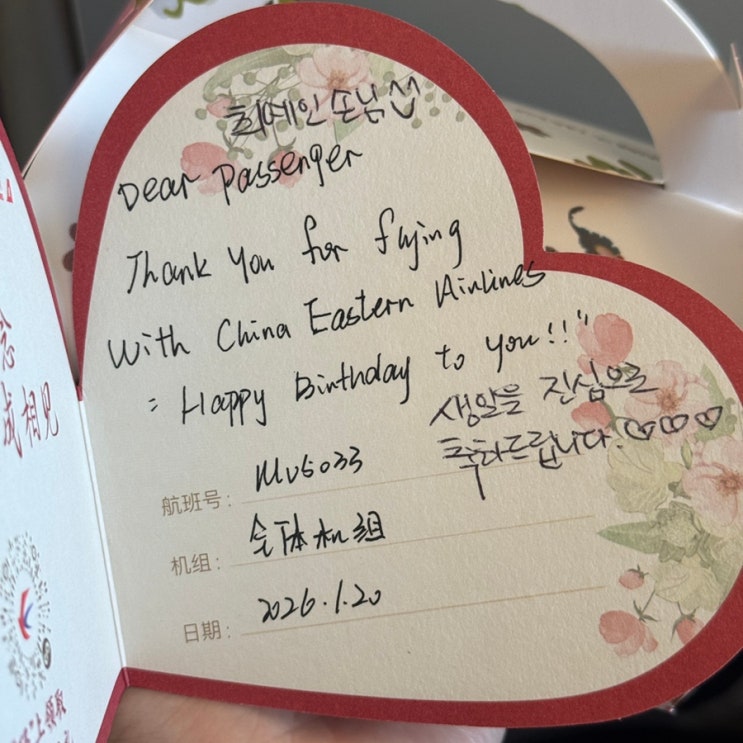 최예인 손님
Dear Passenger
Thank you for flying
with China Eastern Airlines
= Happy Birthday to you!!"
생일을 진심으로
축하드립니다.♡♡♡
航班号: MU5033
机组: 全体机组
日期: 2026.1.20
念
成相见
上领取